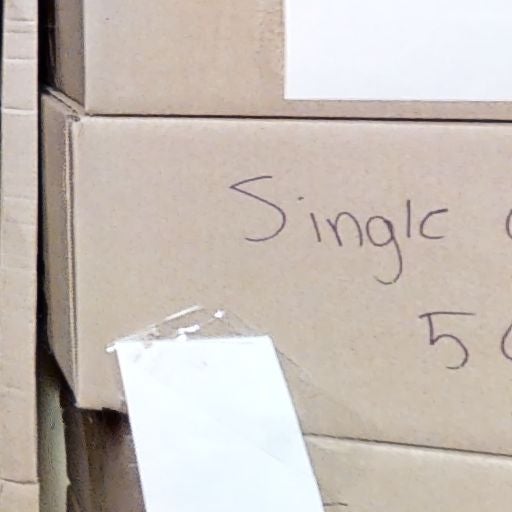 Single
5